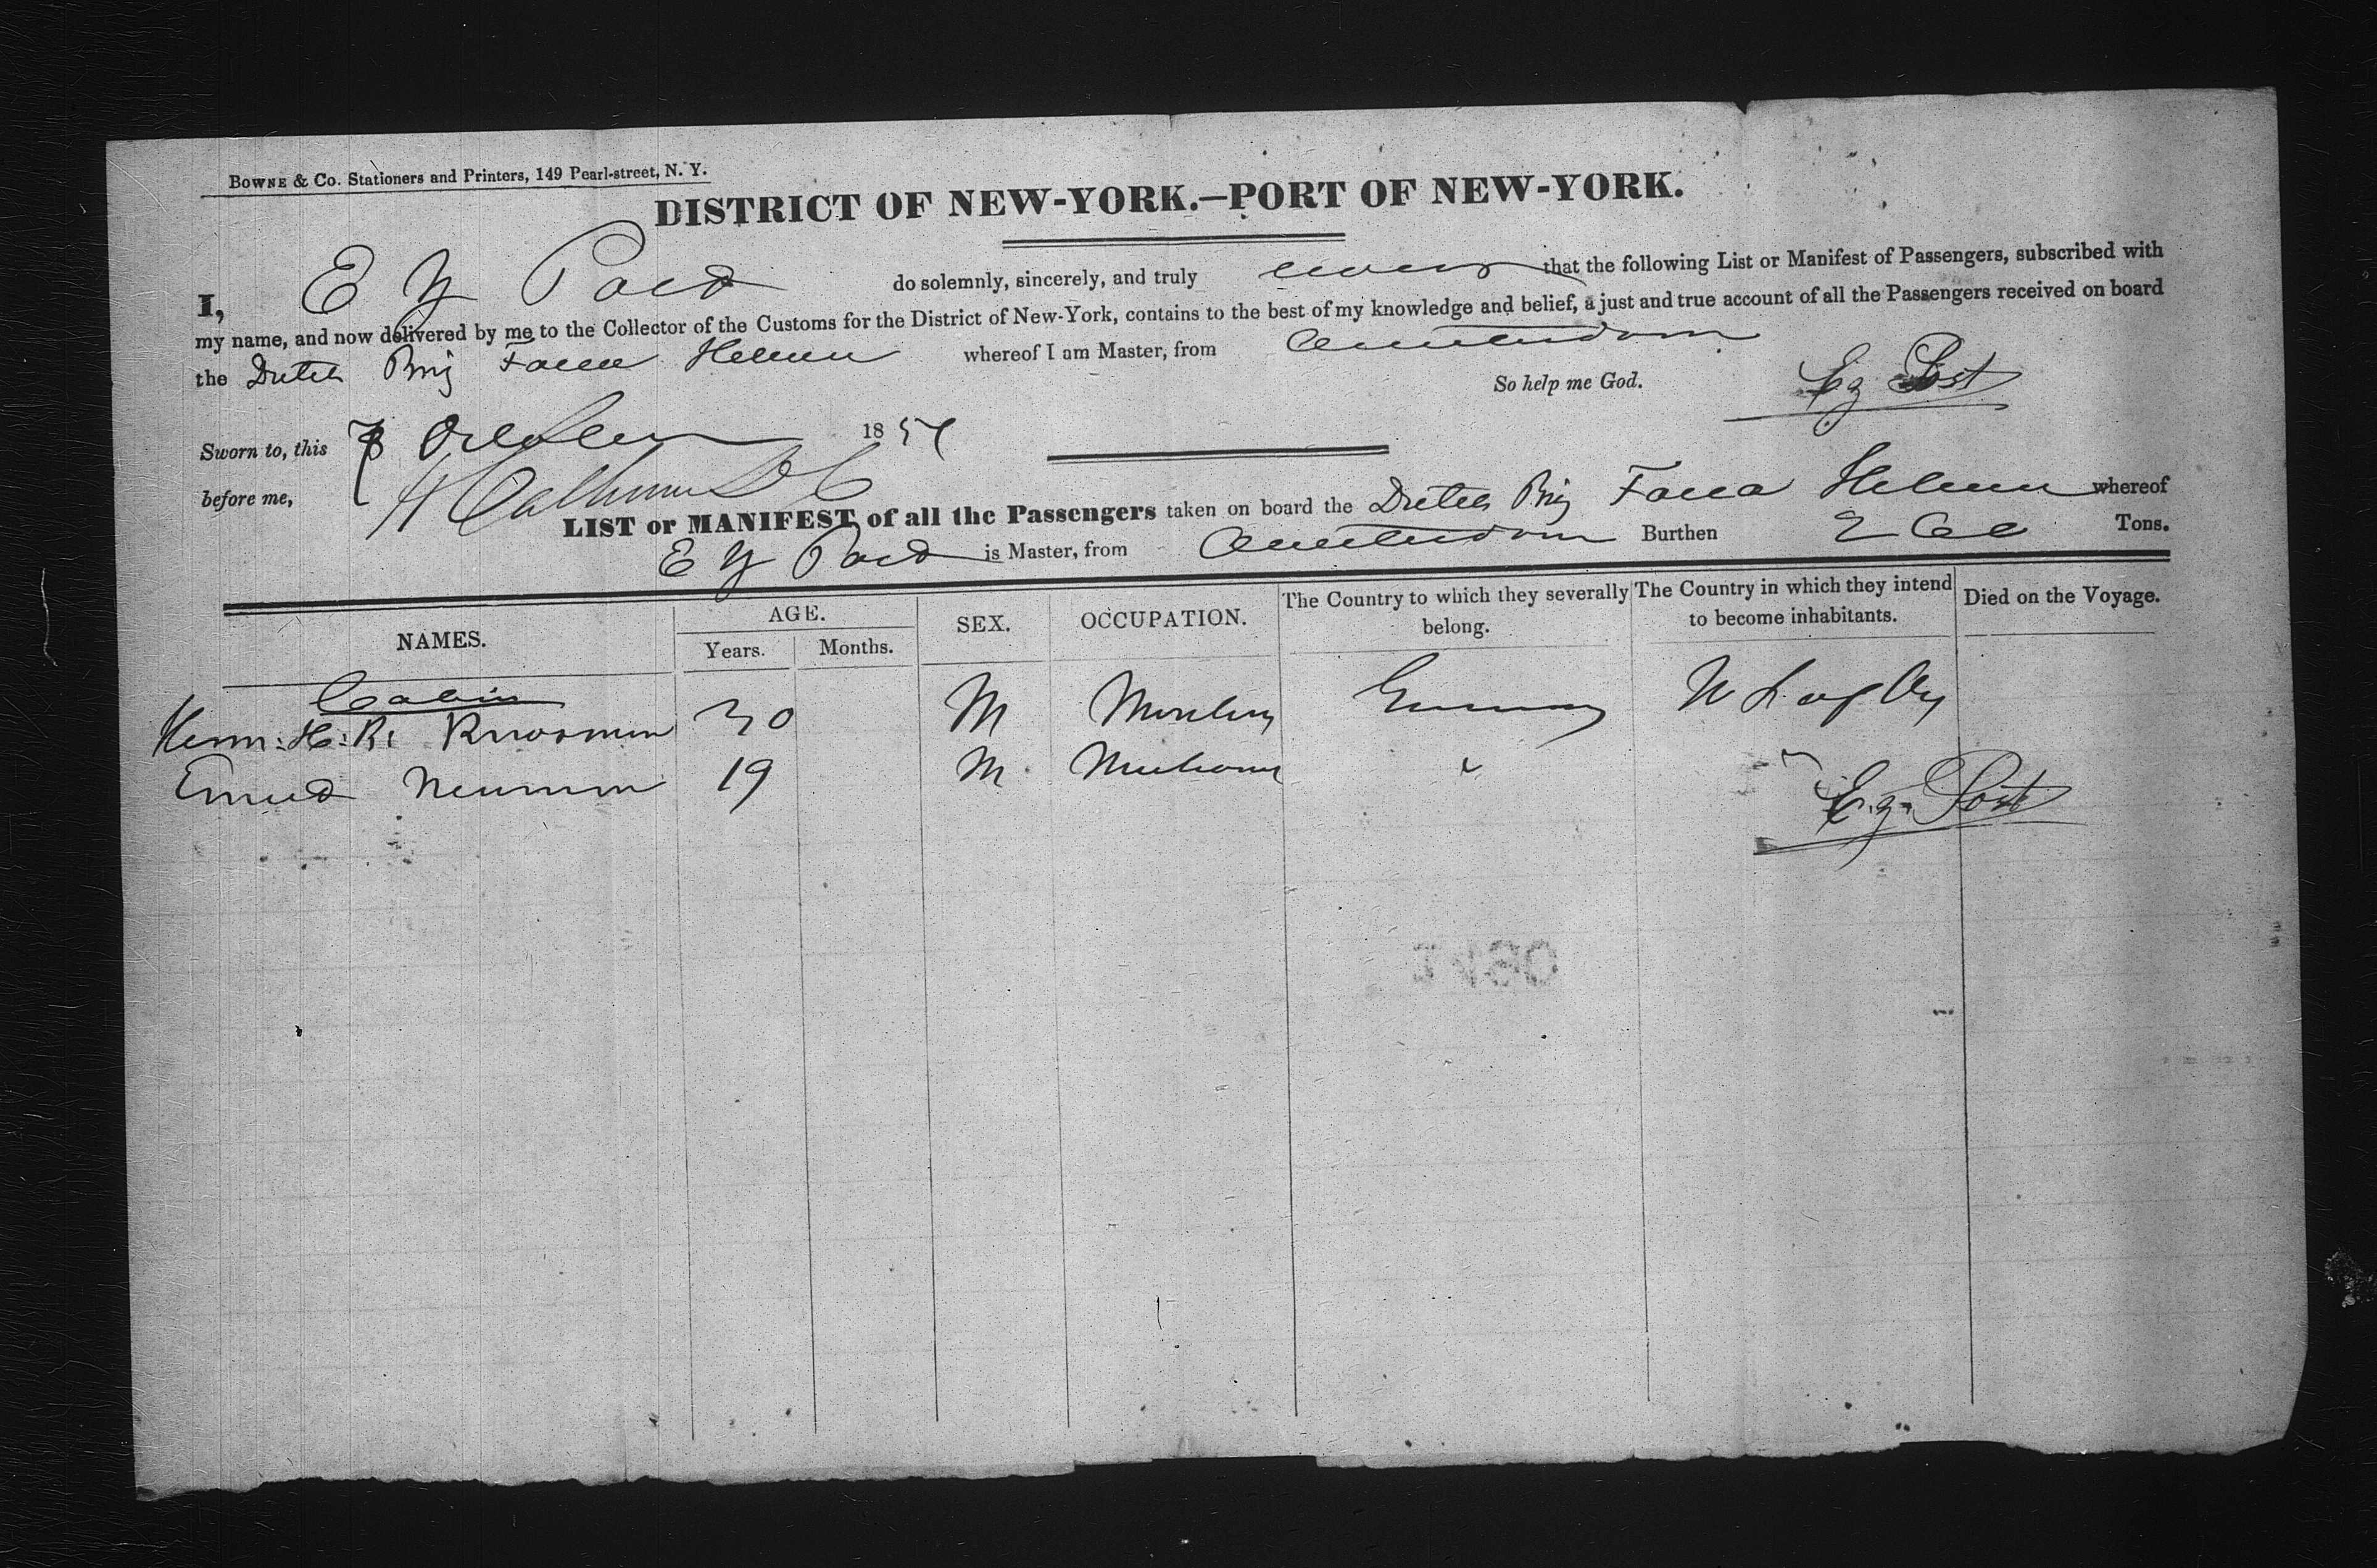 BOWNE & CO. Stationers and Printers, 149 Pearl-street, N. Y.
DISTRICT OF NEW-YORK.—PORT OF NEW-YORK.
I, E Z Post do solemnly, sincerely, and truly swear that the following List or Manifest of Passengers, subscribed with
my name, and now delivered by me to the Collector of the Customs for the District of New-York, contains to the best of my knowledge and belief, a just and true account of all the Passengers received on board
the Dutch Brig Helena whereof I am Master, from Amsterdam
So help me God. E Z Post
Sworn to, this October 185
before me, H Calhoun D C
LIST or MANIFEST of all the Passengers taken on board the Dutch Brig Helena whereof
E Z Post is Master, from Amsterdam Burthen Tons.
NAMES. AGE. SEX. OCCUPATION. The Country to which they severally belong. The Country in which they intend to become inhabitants. Died on the Voyage.
Years. Months.
Cabin
Herm: H: R: 30 M Germany
Neumann 19 M Mechanic "
E. Z. Post